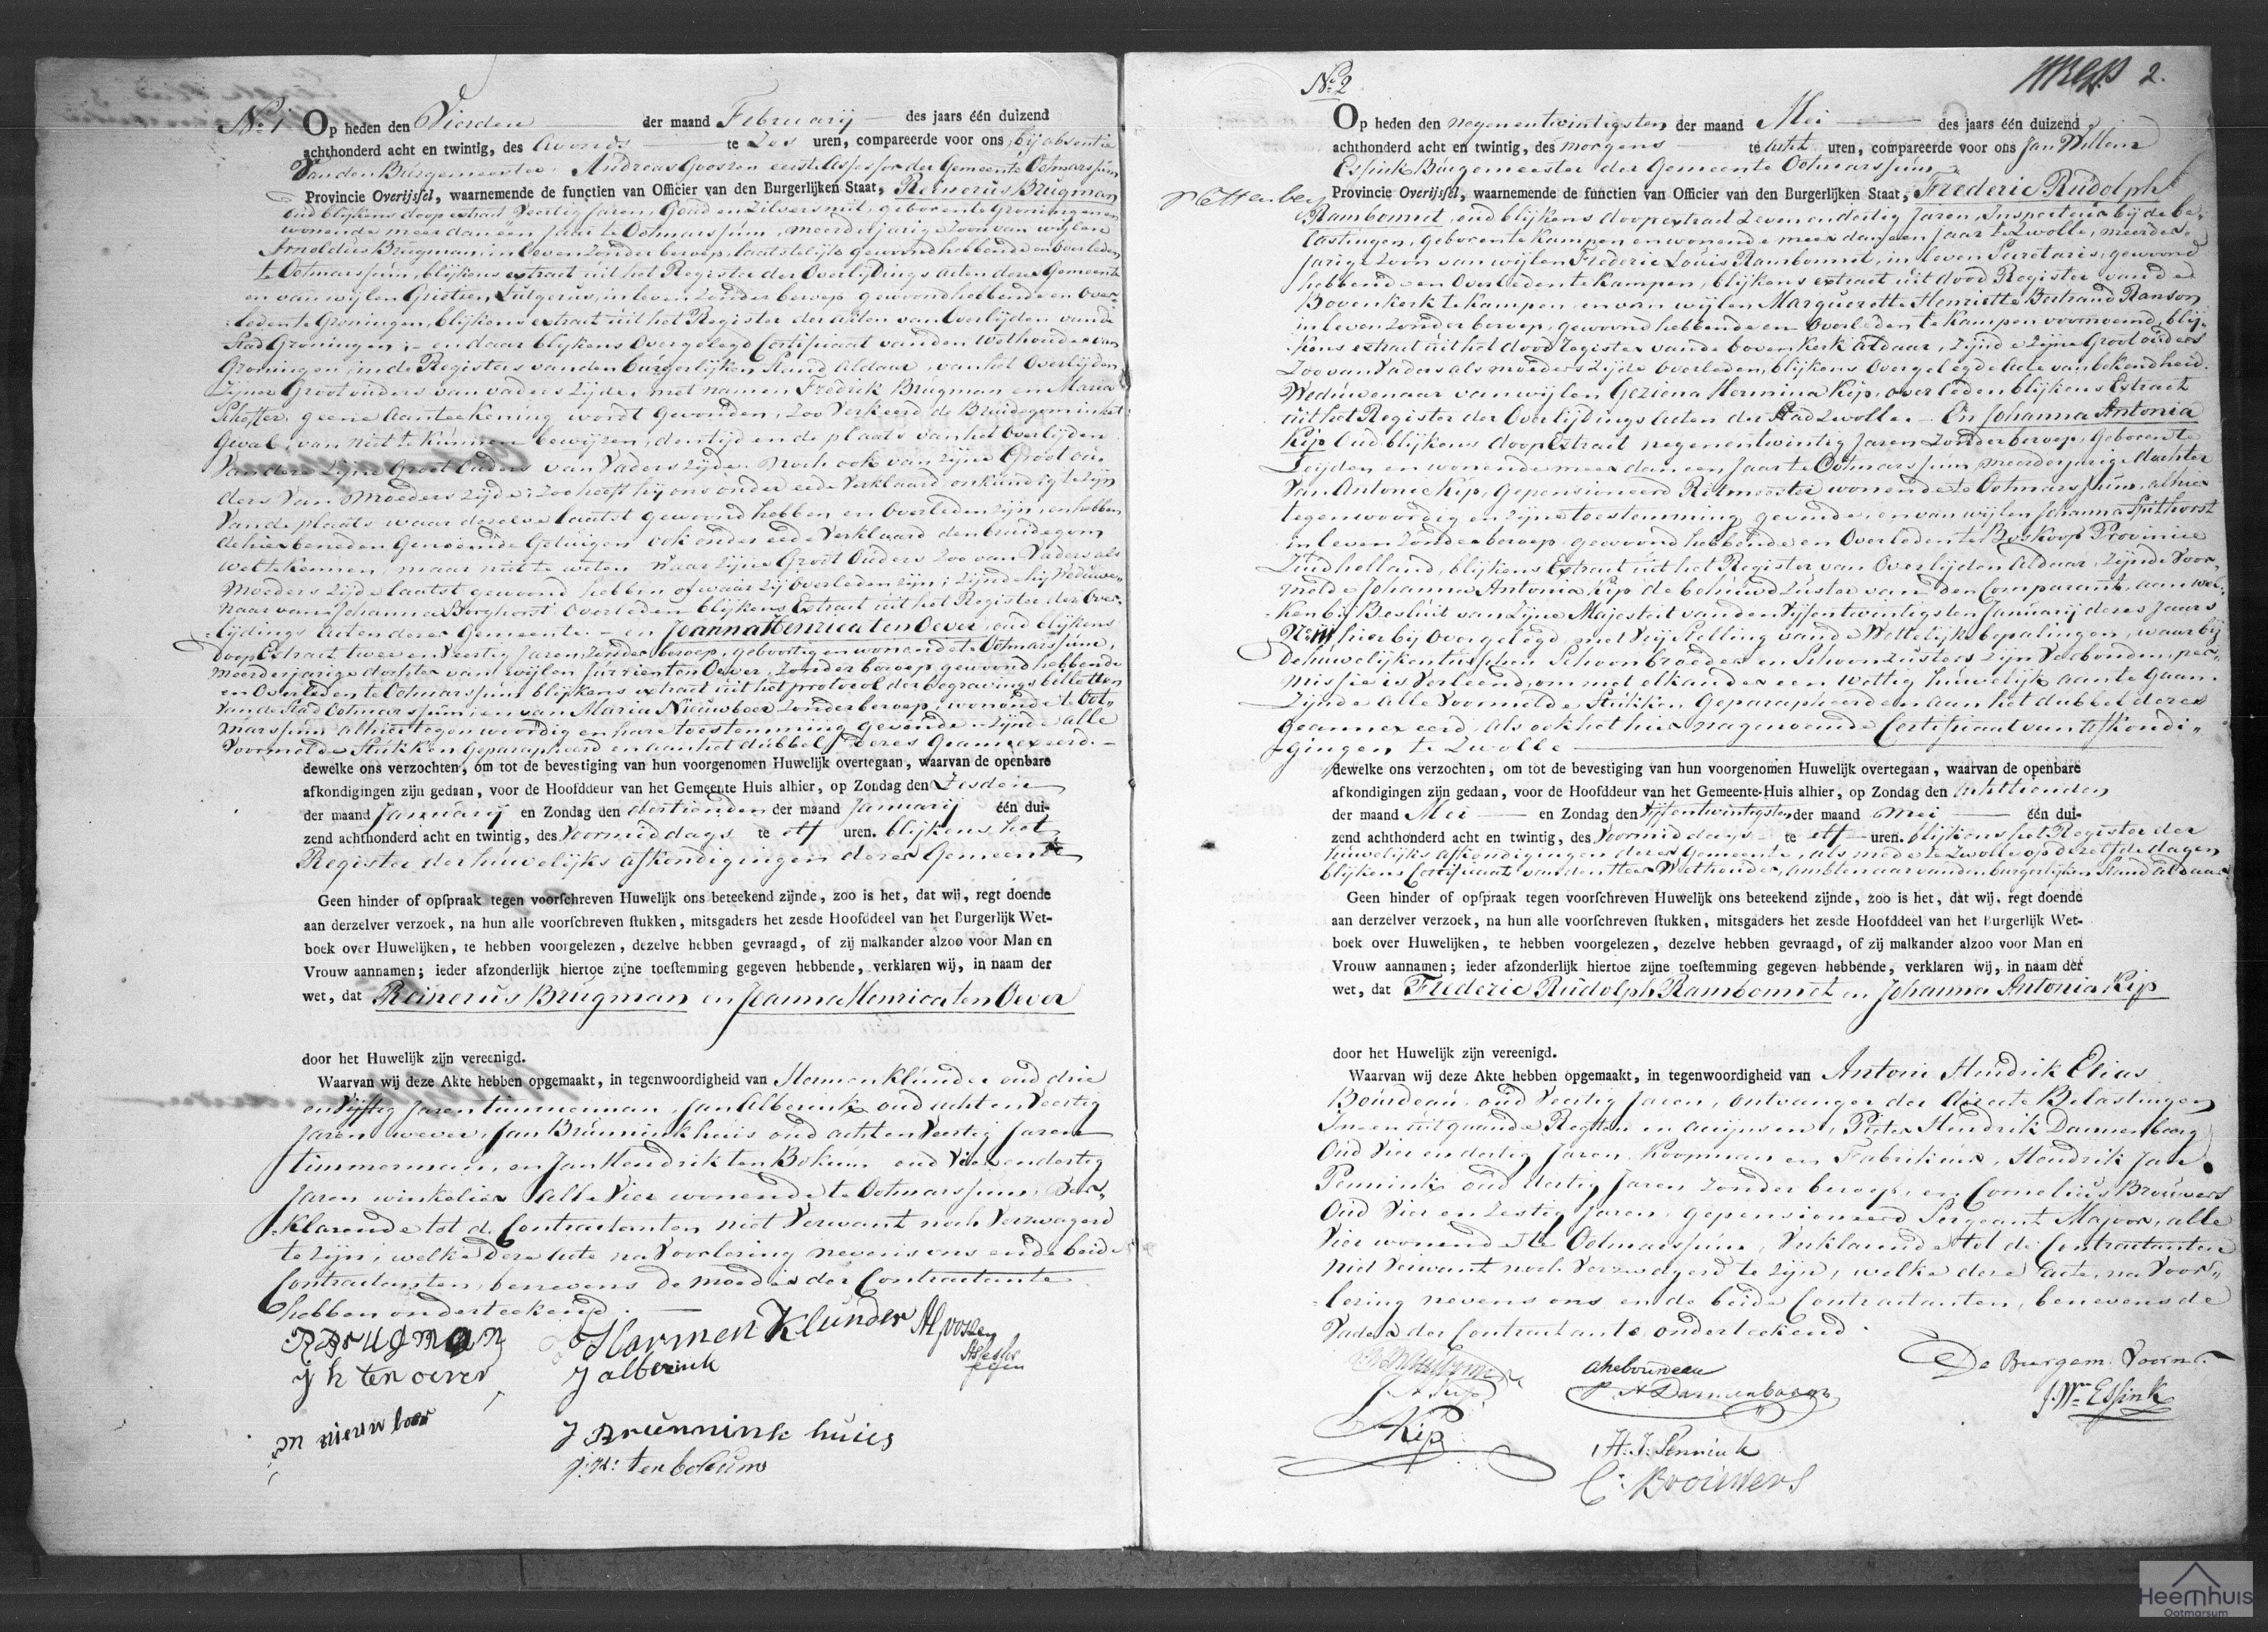 No. 1 Op heden den Vierden der maand Februarij des jaars één duizend
achthonderd acht en twintig, des Avonds te Zes uren, compareerde voor ons, bij absentie
van den Burgemeester, Andreas Goossen eerste Assessor der Gemeente Ootmarssum
Provincie Overijssel, waarnemende de functien van Officier van den Burgerlijken Staat, Reinerus Brugman
oud blijkens doop extract Veertig Jaren, Goud en Zilversmit, geboren te Groningen en
wonende meer dan een Jaar te Ootmarssum, meerderjarige Zoon van wijlen
Arnoldus Brugman, in leven zonder beroep, laatstelijk gewoond hebbende en overleden
te Ootmarssum, blijkens extract uit het Register der Overlijdings acten dezer Gemeente
en van wijlen Grietien Lutgerus, in leven zonder beroep gewoond hebbende en over-
leden te Groningen, blijkens extract uit het Register der acten van Overlijden van de
Stad Groningen; en daar blijkens Overgelegd Certificaat van den Wethouder van
Groningen, in de Registers van den burgerlijken Stand aldaar, van het Overlijden
Zijner Grootouders van vaders zijde, met namen Fredrik Brugman en Maria
Scheffer, geene aanteekening wordt gevonden, zoo verkeerd de Bruidegom in het
Geval, van niet te kunnen bewijzen, den tijd en de plaats van het overlijden
van deze zijne Groot Ouders van Vaders zijde, noch ook van zijne Groot Ou-
ders van Moeders zijde; zoo heeft hij ons onder eede verklaard onkundig te zijn
van de plaats waar dezelve laatst gewoond hebben en overleden zijn, en hebben
de hier beneden Genoemde Getuigen ook onder eede verklaard den bruidegom
wel te kennen, maar niet te weten waar zijne Groot Ouders zoo van Vaders als
Moeders zijde laatst gewoond hebben of waar zij overleden zijn; zijnde hij Weduwe-
naar van Johanna Borghorst overleden blijkens Extract uit het Register der Over-
lijdings Acten dezer Gemeente. – en Jeanna Henrica ten Oever, oud blijkens
doop Extract twee en Veertig Jaren, zonder beroep, geboortig en wonende te Ootmarssum,
meerderjarige dochter van wijlen Jurrien ten Oever, zonder beroep gewoond hebbende
en Overleden te Ootmarssum blijkens extract uit het protocol der begravings billetten
van de Stad Ootmarssum; en van Maria Nieuwboer zonder beroep, wonende te Oot-
marssum alhier tegenwoordig en hare toestemming gevende. zijnde alle
voormelde Stukken Geparapheerd en aan het dubbel dezes Geannexeerd. –
dewelke ons verzochten, om tot de bevestiging van hun voorgenomen Huwelijk overtegaan, waarvan de openbare
afkondigingen zijn gedaan, voor de Hoofddeur van het Gemeente Huis alhier, op Zondag den Zesden
der maand Januarij en Zondag den dertienden der maand Januarij één dui-
zend achthonderd acht en twintig, des Voormiddags te elf uren. blijkens het
Register der huwelijks afkondigingen dezer Gemeente
Geen hinder of opspraak tegen voorschreven Huwelijk ons beteekend zijnde, zoo is het, dat wij, regt doende
aan derzelver verzoek, na hun alle voorschreven stukken, mitsgaders het zesde Hoofddeel van het Burgerlijk Wet-
boek over Huwelijken, te hebben voorgelezen, dezelve hebben gevraagd, of zij malkander alzoo voor Man en
Vrouw aannamen; ieder afzonderlijk hiertoe zijne toestemming gegeven hebbende, verklaren wij, in naam der
wet, dat Reinerus Brugman en Jeanna Henrica ten Oever
door het Huwelijk zijn vereenigd.
Waarvan wij deze Akte hebben opgemaakt, in tegenwoordigheid van Harmen Klunder oud drie
en Vijftig Jaren timmerman, Jan Alberink oud acht en Veertig
Jaren wever, Jan Brunninkhuis oud acht en Veertig Jaren
timmerman, en Jan Hendrik ten Bokum oud Vier en dertig
Jaren winkelier alle Vier wonende te Ootmarssum, Ver-
klarende tot de Contractanten niet Verwant noch Verzwagerd
te zijn; welke deze acte na Voorlezing nevens ons en de beide
Contractanten, benevens de moeder der Contractante
hebben onderteekend.
R Brugman
Harmen Klunder
AGoossen
Assessor
J h ten oever
J alberink
m nieuwboer
J Brunnink huies
J: H: ten bokum
No. 2
2.
Op heden den negenentwintigsten der maand Mei des jaars één duizend
achthonderd acht en twintig, des morgens te acht uren, compareerde voor ons Jan Willem
Essink Burgemeester der Gemeente Ootmarssum
Provincie Overijssel, waarnemende de functien van Officier van den Burgerlijken Staat, Frederic Rudolph
Rambonnet, oud blijkens doop extract Zeven en dertig Jaren, Inspecteur bij de be-
lastingen, geboren te Kampen en wonende meer dan een Jaar te Zwolle, meerder-
jarige Zoon van wijlen Frederic Louis Rambonnet, in leven Secretaris, gewoond
hebbende en Overleden te Kampen, blijkens extract uit dood Register van de
Bovenkerk te Kampen, en van wijlen Marguerette Henriette Bertrand Ranson
in leven zonder beroep, gewoond hebbende en Overleden te Kampen voornoemd, blij-
kens extract uit het dood register van de boven Kerk aldaar, zijnde zijne Grootouders
Zoo van Vaders als moeders zijde overleden, blijkens overgelegde acte van bekendheid.
Weduwenaar van wijlen Geziena Hermina Kip, overleden blijkens Extract
uit het Register der Overlijdings acten der Stad Zwolle. – En Johanna Antonia
Kip oud blijkens doop Extract negenentwintig Jaren zonder beroep, Geboren te
Leijden en wonende meer dan een Jaar te Ootmarssum, meerderjarige dochter
van Antonie Kip, gepensioneerd Ritmeester wonende te Ootmarssum, alhier
tegenwoordig en zijne toestemming gevende, en van wijlen Johanna Suthorst
in leven zonder beroep gewoond hebbende en Overleden te Boskoop Provincie
Zuidholland, blijkens Extract uit het Register van Overlijden Aldaar, zijnde voor-
melde Johanna Antonia Kip de behuwd Zuster van den Comparant, aan wel-
ken bij Besluit van Zijne Majesteit van den Vijfentwintigsten Januarij dezes Jaars
hierbij overgelegd, met Vrij Stelling van de Wettelijke bepalingen, waarbij
de huwelijken tusschen Schoonbroeders en Schoonzusters zijn Verbonden, per-
missie is Verleend, om met elkander een wettig huwelijk aan te Gaan.
Zijnde alle Voormelde Stukken Geparapheerd en aan het dubbel dezes
Geannexeerd, als ook het hier nagenoemde Certificaat van afkondi-
gingen te Zwolle
dewelke ons verzochten, om tot de bevestiging van hun voorgenomen Huwelijk overtegaan, waarvan de openbare
afkondigingen zijn gedaan, voor de Hoofddeur van het Gemeente-Huis alhier, op Zondag den Achttienden
der maand Mei en Zondag den Vijfentwintigsten der maand Mei één dui-
zend achthonderd acht en twintig, des Voormiddags te elf uren. blijkens het Register der
huwelijks afkondigingen dezer Gemeente, als mede te Zwolle op dezelfde dagen
blijkens Certificaat van den Heer Wethouder, Ambtenaar van den burgerlijken Stand aldaar
Geen hinder of opspraak tegen voorschreven Huwelijk ons beteekend zijnde, zoo is het, dat wij, regt doende
aan derzelver verzoek, na hun alle voorschreven stukken, mitsgaders het zesde Hoofddeel van het Burgerlijk Wet-
boek over Huwelijken, te hebben voorgelezen, dezelve hebben gevraagd, of zij malkander alzoo voor Man en
Vrouw aannamen; ieder afzonderlijk hiertoe zijne toestemming gegeven hebbende, verklaren wij, in naam der
wet, dat Frederic Rudolph Rambonnet en Johanna Antonia Kip
door het Huwelijk zijn vereenigd.
Waarvan wij deze Akte hebben opgemaakt, in tegenwoordigheid van Antoni Hendrik Elias
Bourdeau, oud Veertig Jaren, ontvanger der directe Belastingen
In en uitgaande Regten en accijnsen, Pieter Hendrik Dannenbarg
Oud Vier en dertig Jaren Koopman en Fabrikeur, Hendrik Jan
Pennink oud dertig Jaren zonder beroep, en Cornelius Brouwers
Oud Vier en Zestig Jaren, gepensioneerd Sergeant Majoor, alle
Vier wonende te Ootmarssum, Verklarende tot de Contractanten
niet Verwant noch Verzwagerd te zijn, welke deze acte, na Voor-
lezing nevens ons en de beide Contractanten, benevens de
Vader der Contractante onderteekend.
ahebourdeau
De Burgem. Voorn.
J A Kip
P H Dannenbargh
J. Wm Essink
A Kip
H. J. Pennink
C: Brouwers
Heemhuis
Ootmarsum